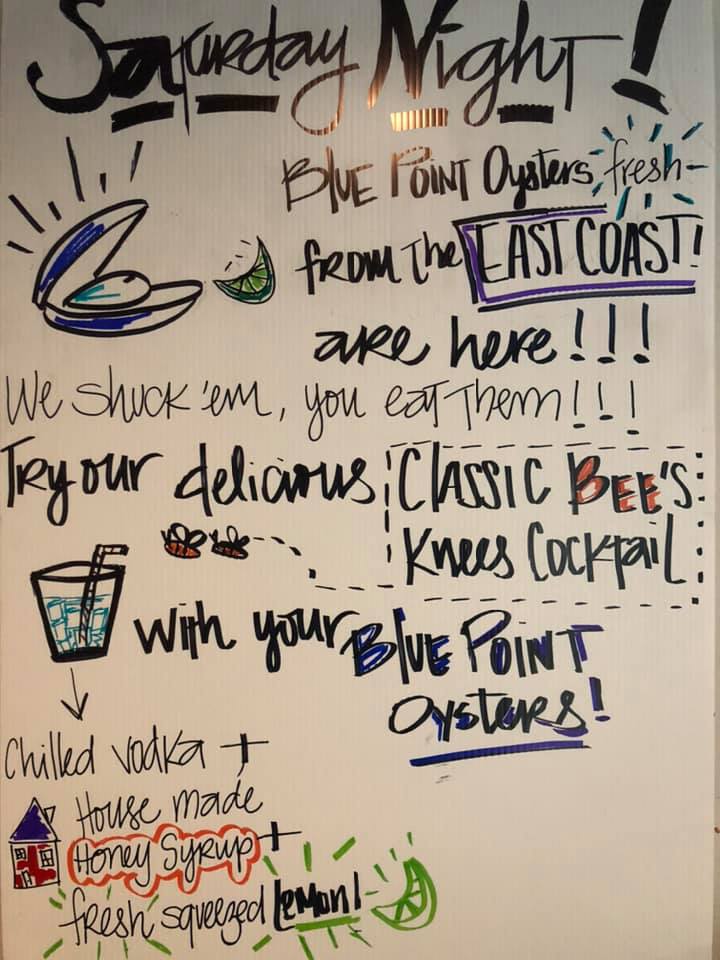 Saturday Night!
Blue Point Oysters, fresh-
from the EAST COAST!
are here!!!
We shuck 'em, you eat Them!!!
Try our delicious Classic Bee's
Knees Cocktail
with your Blue Point
Oysters!
Chilled vodka +
House made
Honey Syrup +
fresh squeezed Lemon!